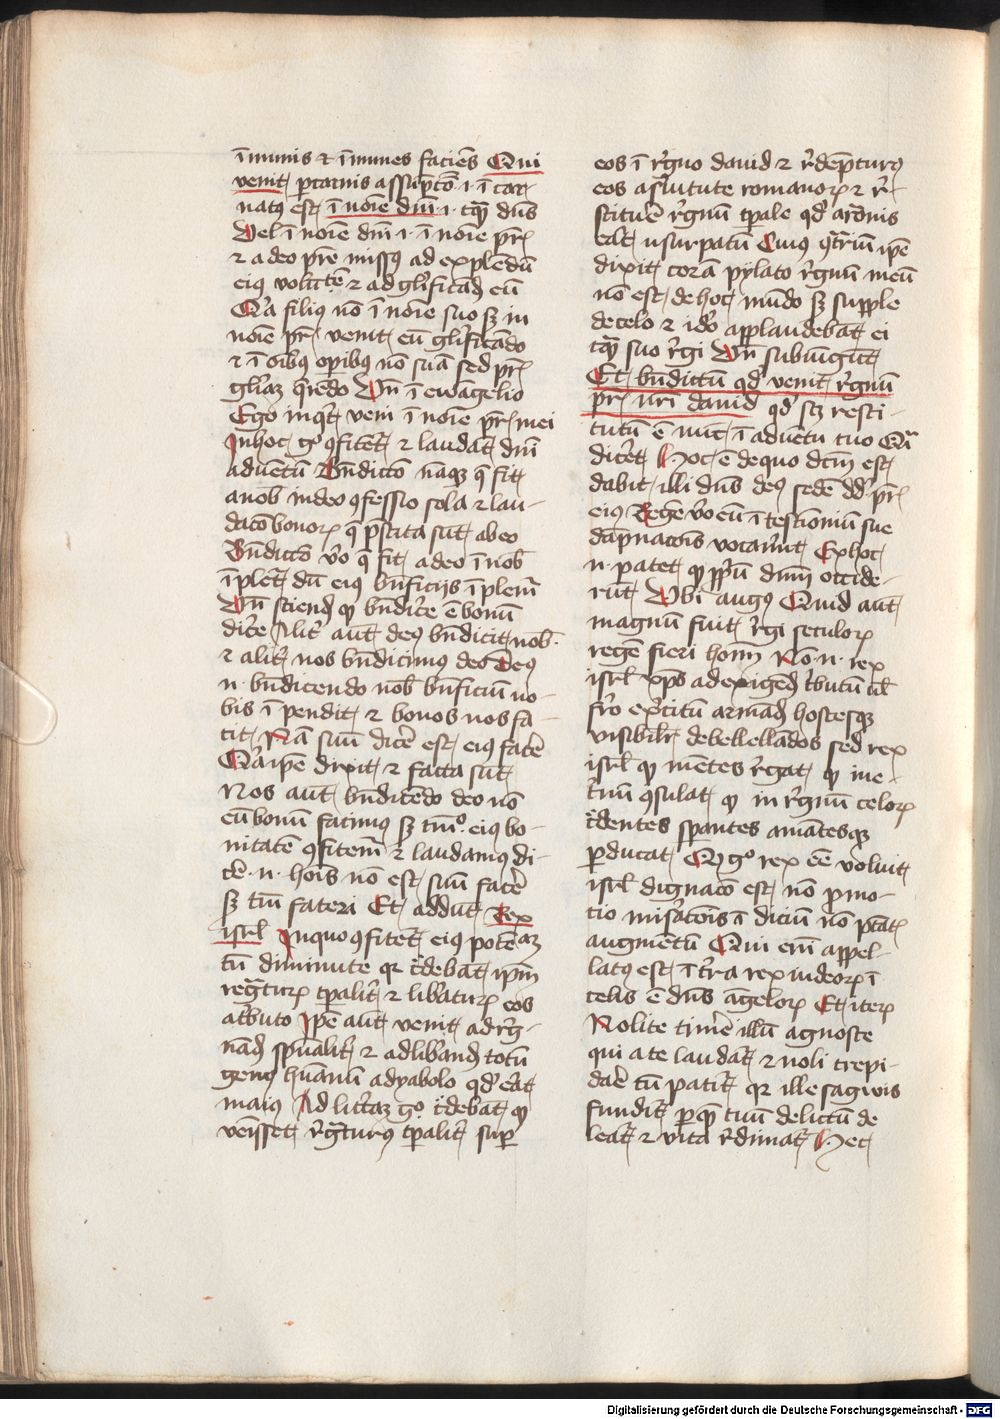 īmunis ⁊ īmunes faciēs Qui
venit ꝑ carnis assūptōꝫ .i. ī car-
natꝰ est ī noīe dn̄i .i. tq̄ȝ dn̄s
Vel ī noīe dn̄i .i. ī noīe pr̄is
⁊ a deo pr̄e missꝰ ad explendū
eiꝰ volūtatē ⁊ ad gl̓ificandū eū
Qr̓ filiꝰ nō ī noīe suo sȝ in
noīe pr̄is venit eū gl̓ificādo
⁊ ī oībꝰ oꝑibꝰ nō suā sed pr̄is
gl̓iaȝ q̄rēdo Vn̄ ī ewāgelio
Ego inq̓t veni ī noīe pr̄is mei
In hoc gͦ ꝯfitēt ⁊ laudāt dn̄i
aduētū Bn̄dictō nāqȝ q̄ fit
a nob̓ in deo ꝯfessio sola ⁊ lau-
dacō bonoꝝ q̄ p̄stita sūt ab eo
Bn̄dictō v̓o q̄ fit a deo ī nob̓
īplet̄ dū eiꝰ bn̄ficijs īplem̄
Vn̄ sciend̄ ꝙ bn̄dic̓e ē bonū
dic̓e Alit̓ aūt deꝰ bn̄dicit nob̓
⁊ alit̓ nos bn̄dicimꝰ deo Deꝰ
.n. bn̄dicendo nob̓ bn̄ficiū no-
bis īpendit ⁊ bonos nos fa-
cit Nā suū dic̓e est eiꝰ fac̓e
Qr̓ ip̄e dixit ⁊ facta sūt
Nos aūt bn̄dicēdo deo nō
eū bonū facimꝰ sȝ tm̄ͦ eiꝰ bo-
nitatē ꝯfitem̄ ⁊ laudamꝰ di-
c̓e .n. hoīs nō est suū fac̓e
sȝ tm̄ fateri Et addūt Rex
isrl̄ In quo ꝯfitēt eiꝰ potē aȝ
tn̄ diminute qr̓ c̓debāt ip̄m
regnaturꝝ tp̄alit̓ ⁊ lib̓aturꝝ eos
a t̓buto Ip̄e aūt venit ad rg̓-
nād̄ sp̄ualit̓ ⁊ ad lib̓and̄ totū
genꝰ hūanū a dyabolo qd̓ erat
maiꝰ Ad litt̓aȝ gͦ c̓debāt ꝙ
venīsset rg̓naturꝰ tp̄alit̓ suꝑ
eos ī rg̓no dauid ⁊ rd̓ēpturꝰ
eos a s̓uitute romanoꝝ ⁊ r̓-
stituē rg̓nū tp̄ale qd̓ ab oīs
erāt usurpatū Cuiꝰ ꝯt̓riū ip̄e
dixit corā pylato rg̓nū meū
nō est de hoc mūdo sȝ supple
de celo ⁊ iō applaudebāt ei
tq̄ȝ suo rg̓i Vn̄ subiūgūt
Et bn̄dictū qd̓ venit rg̓nū
pr̄is nr̄i dauid qd̓ scȝ resti-
tutū ē nūc ī aduētu tuo Qͣ
dic̓et Hoc ē de quo dcm̄ est
dabit illi dn̄s deꝰ sedē dd̄ pr̄is
eiꝰ Regē v̓o eū ī testioniū sue
dāpnacōis vocauerūt Ex hoc
.n. patet ꝙ ꝓpriū dn̄m occide-
rūt Vbi augꝰ Quid aūt
magnū fuit rg̓i seculoꝝ
regē fieri hoīm Nō .n. rex
isrl̄ xp̄s ad exigend̄ t̓butū ul̄
fr̓o ex̓citū armād̄ hostesqȝ
visibilit̓ debellellādos sed rex
isrl̄ ꝙ mētes rg̓at ꝙ ī e-
t̓nū ꝯsulat ꝙ in rg̓nū celoꝝ
c̓dentes sp̄antes amātesqȝ
ꝑducat Qͩ gͦ rex eē voluit
isrl̄ dignacō est nō ꝓmo-
tio mis̓acōis īdiciū nō ptātis
augmētū Qui em̄ appel-
latꝰ est ī t̓ra rex iudeoꝝ ī
celis ē dn̄s āgeloꝝ Et iteꝝ
Nolite tim̓e illū agnosce
qui a te laudat̓ ⁊ noli trepi-
dar̓e cū patit̓ qr̓ ille sāgwis
fundit̓ ꝑ quē tuū delictū de
leat̓ ⁊ vita rd̓imat̓ Hec
Digitalisierung gefördert durch die Deutsche Forschungsgemeinschaft - DFG